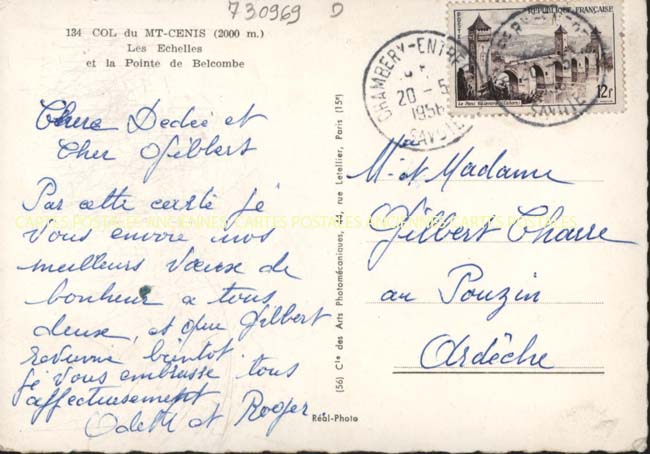 730969 D
134 COL du MT-CENIS (2000 m.)
Les Echelles
et la Pointe de Belcombe
Chere Dedée et
Cher Gilbert
Par cette carte je
vous envoie nos
meilleurs vœux de
bonheur a tous
deux, et que Gilbert
revienne bientot.
je vous embrasse tous
affectueusement
Odette et Roger
Réal-Photo
(56) Cie des Arts Photomécaniques, 44, rue Letellier, Paris (15e)
CARTES POSTALES ANCIENNES CARTES POSTALES ANCIENNES CARTES POSTALES
POSTES RÉPUBLIQUE FRANÇAISE
Le Pont Valentré Cahors
12F
CHAMBERY-ENTREPOT
20-5
1956
SAVOIE
SAVOIE
Mr et Madame
Gilbert Charre
au Pouzin
Ardèche